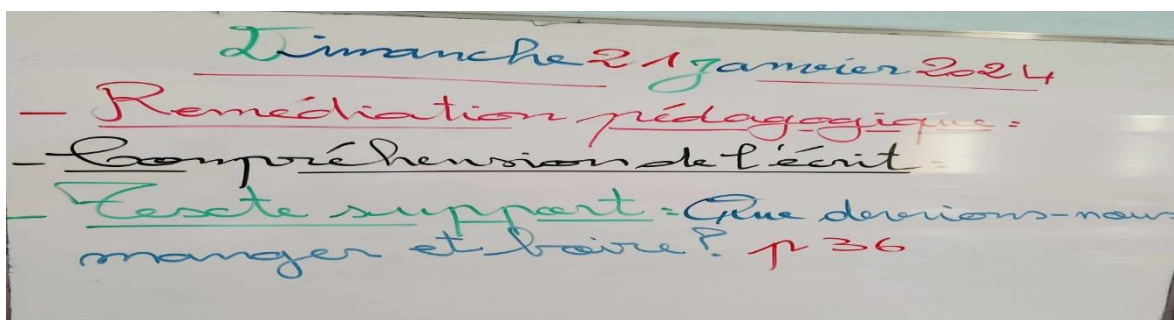 Dimanche 21 Janvier 2024
- Remédiation pédagogique :
- Compréhension de l'écrit :
- Texte support : Que devrions-nous
manger et boire ? p 36